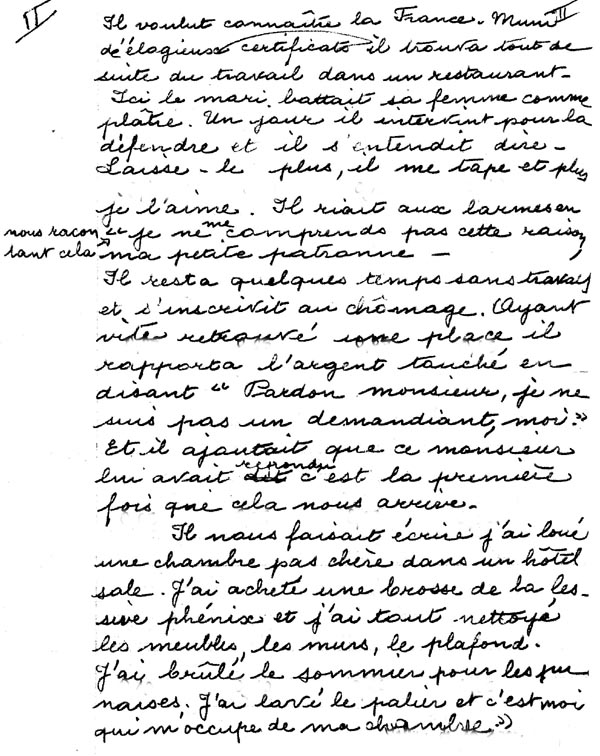 II
Il voulut connaître la France. Muni II
d'élogieux certificats il trouva tout de
suite du travail dans un restaurant -
Ici le mari battait sa femme comme
plâtre. Un jour il intervint pour la
défendre et il s'entendit dire -
Laisse - le plus, il me tape et plus
je l'aime. Il riait aux larmes en
nous racon
tant cela
" je ne me comprends pas cette raison,
ma petite patronne -
Il resta quelques temps sans travail
et s'inscrivit au chômage. Ayant
vite retrouvé une place il
rapporta l'argent touché en
disant " Pardon monsieur, je ne
suis pas un demandiant, moi. "
Et il ajoutait que ce monsieur
lui avait dit répondu c'est la première
fois que cela nous arrive.
Il nous faisait écrire j'ai loué
une chambre pas chère dans un hôtel
sale. J'ai acheté une brosse de la les-
sive phénix et j'ai tout nettoyé
les meubles, les murs, le plafond.
J'ai brûlé le sommier pour les pu
naises. J'ai lavé le palier et c'est moi
qui m'occupe de ma chambre. »